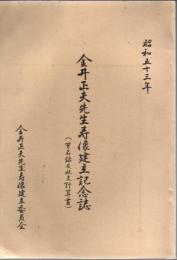 昭和五十三年
金井正夫先生寿像建立記念誌
(芳名録及収支計算書)
金井正夫先生寿像建立委員会